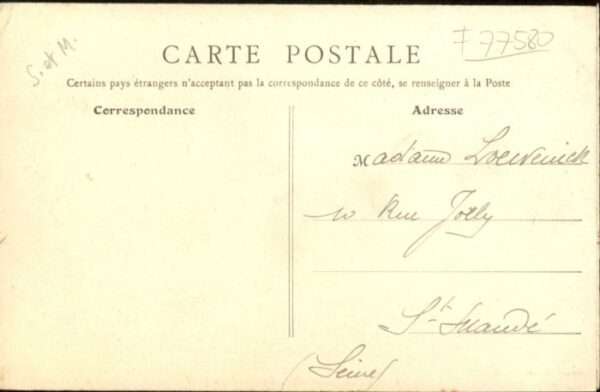 S. et M.
F 77580
CARTE POSTALE
Certains pays étrangers n'acceptant pas la correspondance de ce côté, se renseigner à la Poste
Correspondance
Adresse
Madame
10 Rue Joly
St Mandé
(Seine)